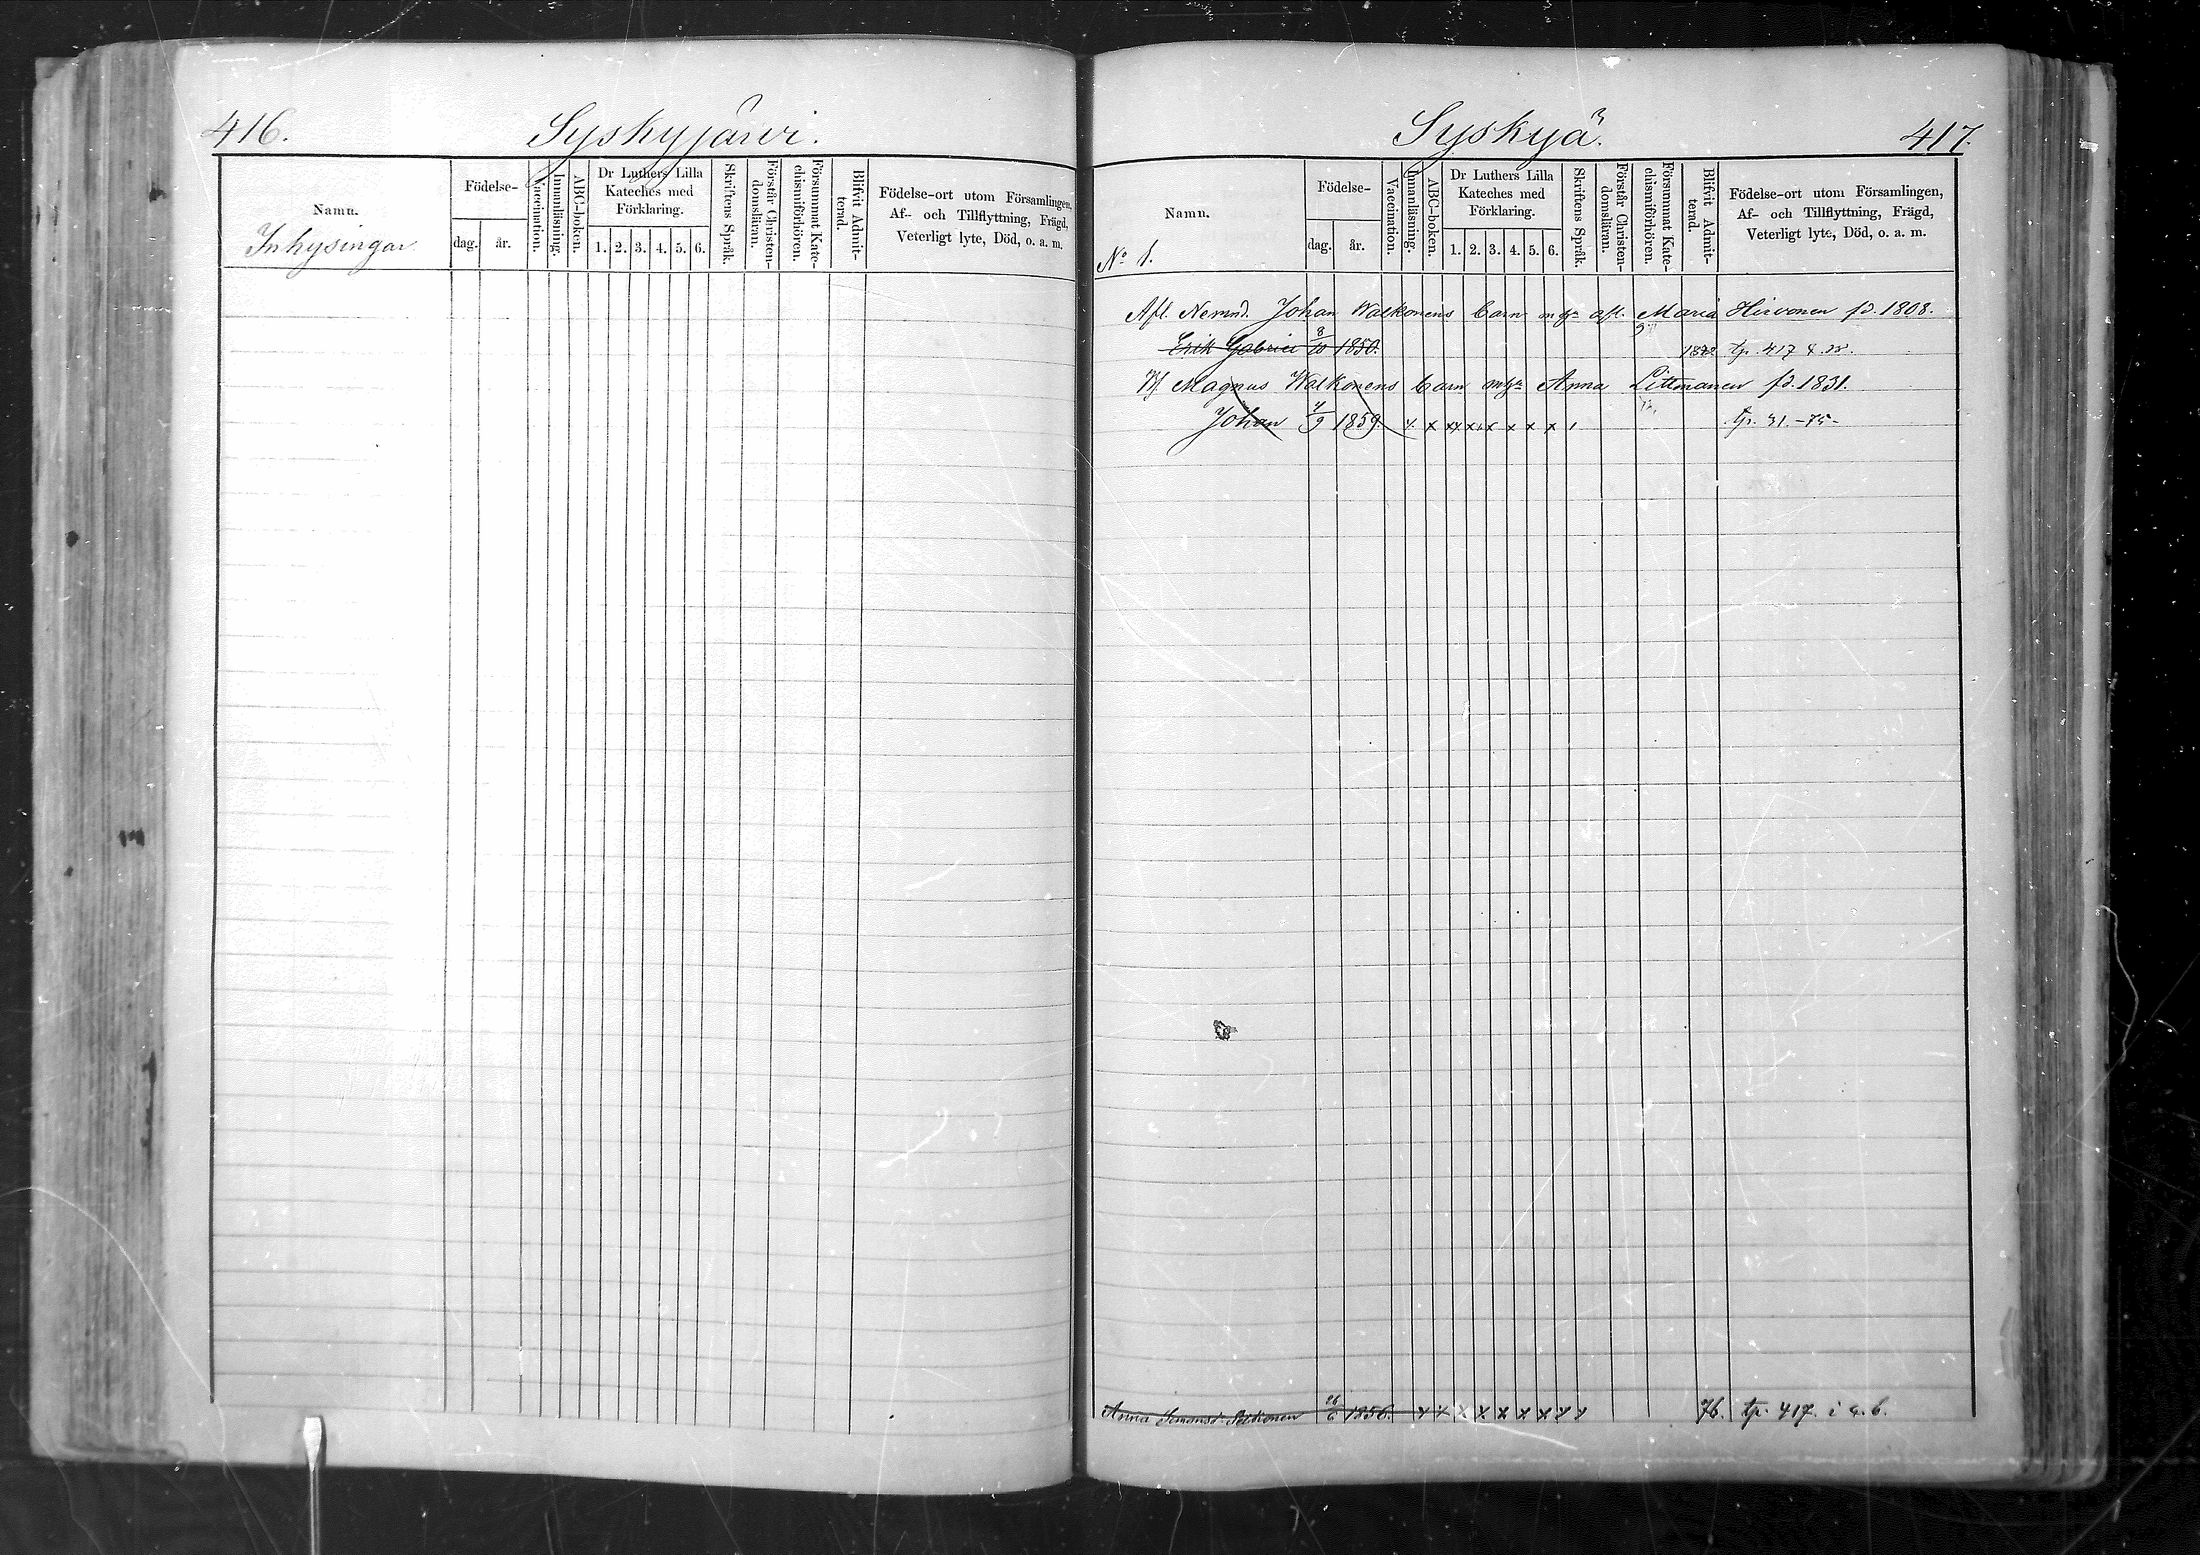 416.
Syskyjärvi.
Namn.
Inhysingar
Födelse-
dag.
år.
Vaccination.
Innanläsning.
ABC-boken.
Dr Luthers Lilla
Kateches med
Förklaring.
1. 2. 3. 4. 5. 6.
Skriftens Språk.
Förstår Christen-
domsläran.
Försummat Kate-
chismiförhören.
Blifvit Admit-
terad.
Födelse-ort utom Församlingen,
Af- och Tillflyttning, Frägd,
Veterligt lyte, Död, o. a. m.
Syskyä.
417.
Namn.
No 1.
Födelse-
dag.
år.
Vaccination.
Innanläsning.
ABC-boken.
Dr Luthers Lilla
Kateches med
Förklaring.
1. 2. 3. 4. 5. 6.
Skriftens Språk.
Förstår Christen-
domsläran.
Försummat Kate-
chismiförhören.
Blifvit Admit-
terad.
Födelse-ort utom Församlingen,
Af- och Tillflyttning, Frägd,
Veterligt lyte, Död, o. a. m.
Afl. Nemnd. Johan Walkonens barn afl. Maria Hirvonen fd. 1808.
Erik Gabriel 8/10 1850. tp. 417
Magnus Walkonens barn Anna Littmanen fd. 1831.
Johan 4/9 1859. x x x x x x x tp. 31. -75-
Anna 26/6 1856. x x x x x x x x x 76. tp. 417. i a. b.